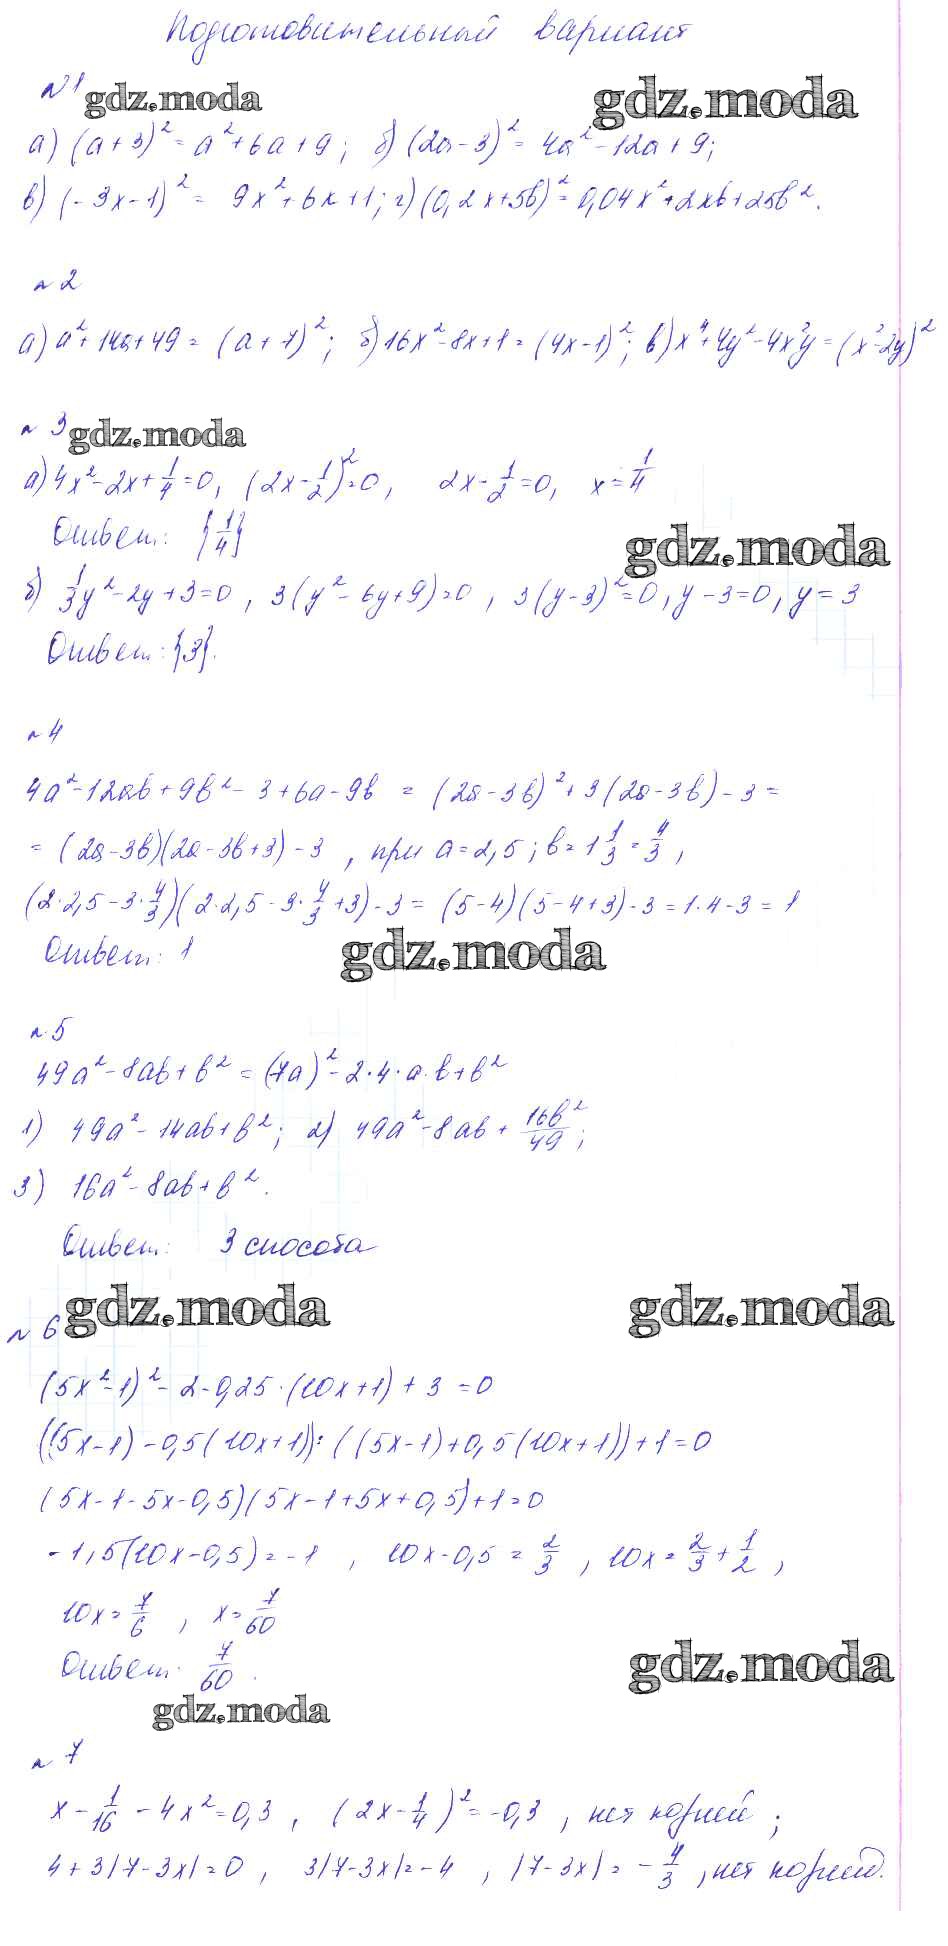 Подготовительный вариант
№1 gdz.moda gdz.moda
а) (a+3)² = a²+6a+9; б) (2a-3)² = 4a²-12a+9;
в) (-3x-1)² = 9x²+6x+1; г) (0,2x+5b)² = 0,04x²+2xb+25b².
№2
а) a²+14a+49 = (a+7)²; б) 16x²-8x+1 = (4x-1)²; в) x⁴+4y²-4x²y = (x²-2y)²
№3 gdz.moda
а) 4x²-2x+1/4=0, (2x-1/2)²=0, 2x-1/2=0, x=1/4
Ответ: {1/4}
gdz.moda
б) 1/3y²-2y+3=0, 3(y²-6y+9)=0, 3(y-3)²=0, y-3=0, y=3
Ответ: {3}.
№4
4a²-12ab+9b²-3+6a-9b = (2a-3b)²+3(2a-3b)-3=
= (2a-3b)(2a-3b+3)-3, при a=2,5; b=1 1/3=4/3,
(2·2,5-3·4/3)(2·2,5-3·4/3+3)-3 = (5-4)(5-4+3)-3=1·4-3=1
Ответ: 1
gdz.moda
№5
49a²-8ab+b² = (7a)²-2·4·a·b+b²
1) 49a²-14ab+b²; 2) 49a²-8ab+16b²/49;
3) 16a²-8ab+b².
Ответ: 3 способа
gdz.moda gdz.moda
№6
(5x²-1)²-2-0,25·(10x+1)+3=0
((5x-1)-0,5(10x+1)):((5x-1)+0,5(10x+1))+1=0
(5x-1-5x-0,5)(5x-1+5x+0,5)+1=0
-1,5(10x-0,5)=-1, 10x-0,5=2/3, 10x=2/3+1/2,
10x=7/6, x=7/60
Ответ: 7/60.
gdz.moda
gdz.moda
№7
x-1/16-4x²=0,3, (2x-1/4)²=-0,3, нет корней;
4+3|7-3x|=0, 3|7-3x|=-4, |7-3x|=-4/3, нет корней.